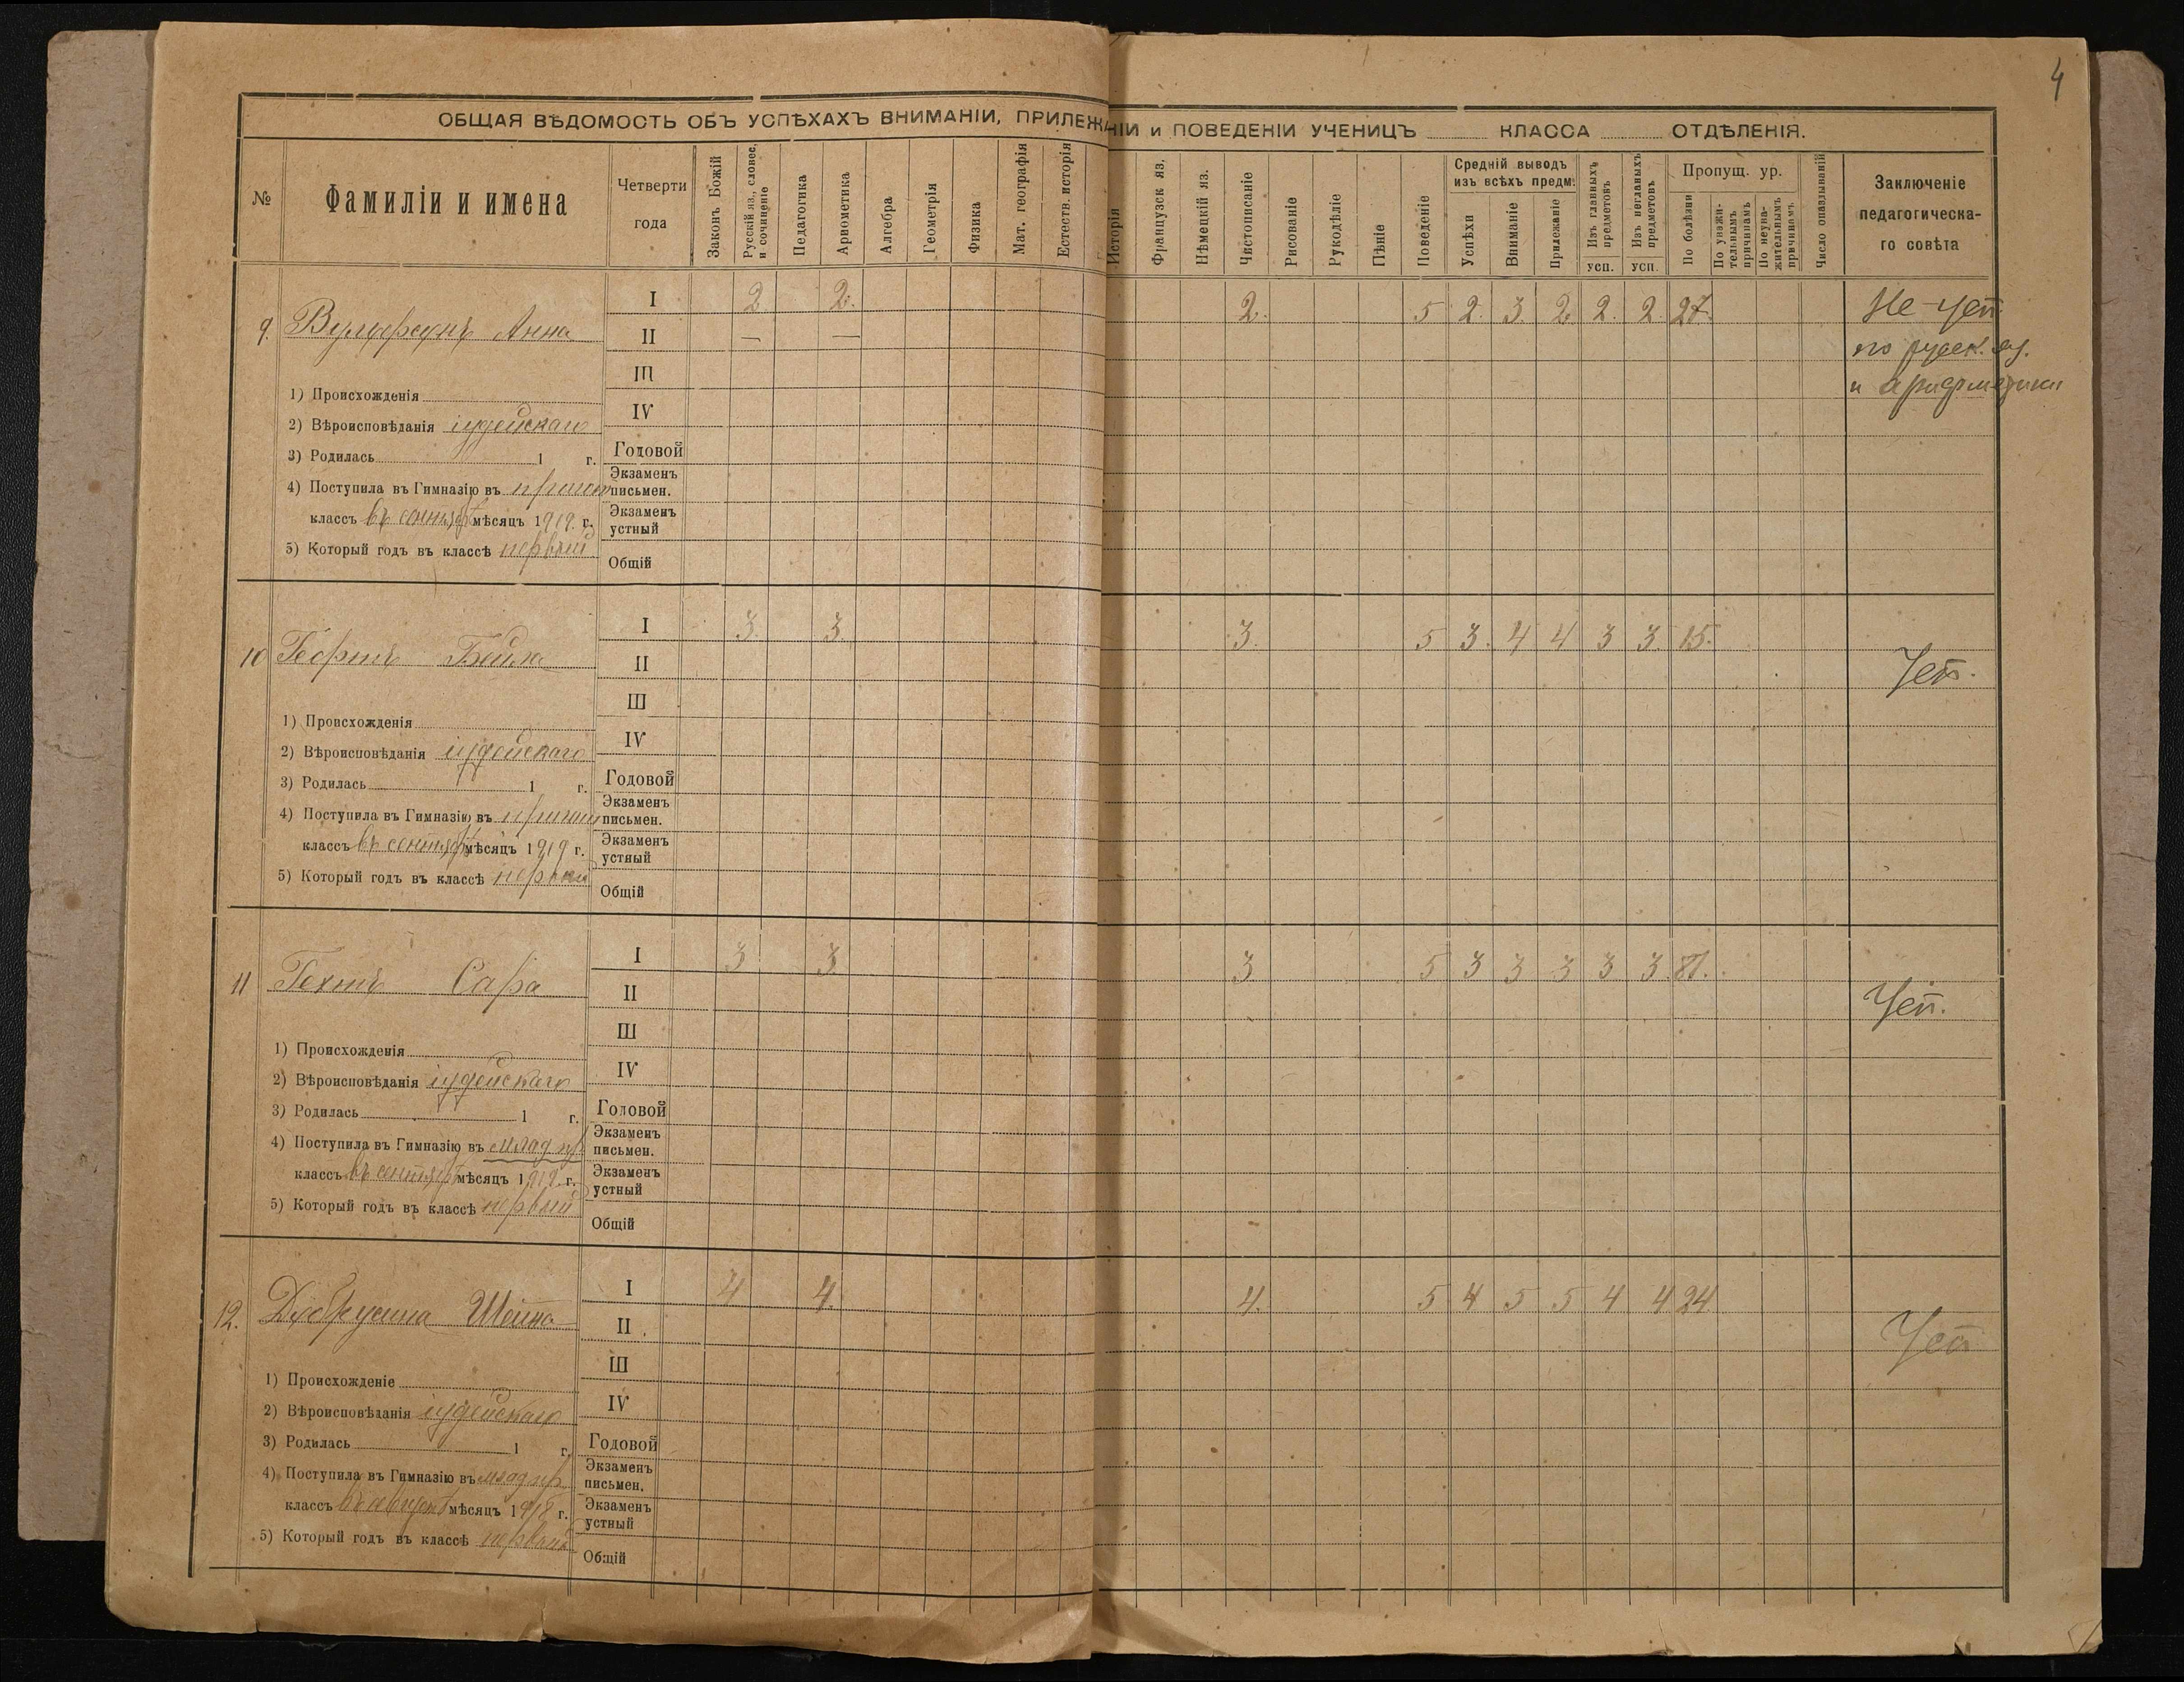 4
ОБЩАЯ ВѢДОМОСТЬ ОБЪ УСПѢХАХЪ ВНИМАНІИ, ПРИЛЕЖАНІИ и ПОВЕДЕНІИ УЧЕНИЦЪ КЛАССА ОТДѢЛЕНІЯ.
№ Фамиліи и имена Четверти года Законъ Божій Русскій яз., словес. и сочиненіе Педагогика Арифметика Алгебра Геометрія Физика Мат. географія Естеств. исторія Исторія Французск яз. Нѣмецкій яз. Чистописаніе Рисованіе Рукодѣліе Пѣніе Поведеніе Средній выводъ изъ всѣхъ предм. Успѣхи Вниманіе Прилежаніе Изъ главныхъ предметовъ усп. Изъ неглавныхъ предметовъ усп. Пропущ. ур. По болѣзни По уважительнымъ причинамъ По неуважительнымъ причинамъ Число опазываній Заключеніе педагогическаго совѣта
9. Вульфсонъ Анна I 2 2. 2. 5 2. 3. 2 2. 2. 27. Не-усп.
II — — по русск. яз.
III и арифметики
1) Происхожденія
IV
2) Вѣроисповѣданія іудейскаго
3) Родилась 1 г. Годовой
4) Поступила въ Гимназію въ Экзаменъ письмен.
классъ въ сентябрѣ мѣсяцъ 1919 г. Экзаменъ устный
5) Который годъ въ классѣ первый Общій
10 Бейла I 3. 3. 3. 5 3. 4 4 3 3. 15. Усп.
II
III
1) Происхожденія
IV
2) Вѣроисповѣданія іудейскаго
3) Родилась 1 г. Годовой
4) Поступила въ Гимназію въ Экзаменъ письмен.
классъ въ сентябрѣ мѣсяцъ 1919 г. Экзаменъ устный
5) Который годъ въ классѣ первый Общій
11 Гехтъ Сара I 3 3 3 5 3 3 3 3 3. Усп.
II
III
1) Происхожденія
IV
2) Вѣроисповѣданія іудейскаго
3) Родилась 1 г. Годовой
4) Поступила въ Гимназію въ млад. пр. Экзаменъ письмен.
классъ въ сентябрѣ мѣсяцъ 1919. г. Экзаменъ устный
5) Который годъ въ классѣ первый Общій
12. Добрусина Шейна I 4 4. 4. 5 4 5 5 4 4 24 Усп.
II
III
1) Происхожденіе
IV
2) Вѣроисповѣданія іудейскаго
3) Родилась 1 г. Годовой
4) Поступила въ Гимназію въ млад. пр. Экзаменъ письмен.
классъ въ августѣ мѣсяцъ 1918 г. Экзаменъ устный
5) Который годъ въ классѣ первый Общій